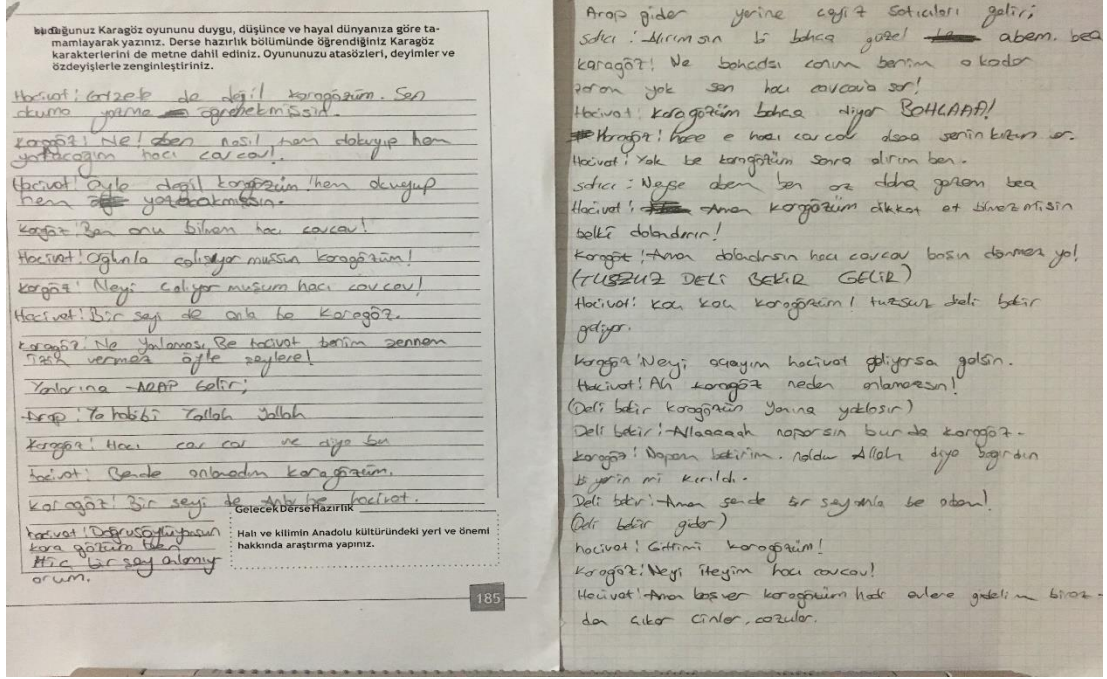 okuduğunuz Karagöz oyununu duygu, düşünce ve hayal dünyanıza göre ta-
mamlayarak yazınız. Derse hazırlık bölümünde öğrendiğiniz Karagöz
karakterlerini de metne dahil ediniz. Oyununuzu atasözleri, deyimler ve
özdeyişlerle zenginleştiriniz.
Hacivat: Gazete de değil karagözüm. Sen
okuma yazma öğrenecekmişsin.
Karagöz: Ne! ben nasıl hem dokuyup hem
yatacağım hacı cavcav!.
Hacivat: Öyle değil karagözüm hem okuyup
hem yazacakmışsın.
Karagöz: Ben onu bilmem hacı cavcav!
Hacivat: Oğlunla çalışıyor mussun karagözüm!
Karagöz: Neyi çalıyor muşum hacı cavcav!
Hacivat: Bir şeyi de anla be Karagöz.
Karagöz: Ne Yalaması Be hacivat benim zennem
izin vermez öyle şeylere!
Yanlarına ARAP Gelir;
Arap: Ya habibi Yallah Yallah
Karagöz: Hacı cav cav ne diyo bu
hacivat: Bende anlamadım karagözüm.
karagöz: Bir şeyi de Anla be hacivat.
hacivat: Doğru söylüyosun
kara gözüm ben
Hiç bir şey anlamıy
orum.
Gelecek Derse Hazırlık
Halı ve kilimin Anadolu kültüründeki yeri ve önemi
hakkında araştırma yapınız.
185
Arap gider yerine çeyiz satıcıları gelir;
satıcı: Alırımsın bi bohça güzel abem. bea
Karagöz: Ne bohçası canım benim o kadar
param yok sen hacı cavcav'a sor!
Hacivat: karagözüm bohça diyor BOHÇAAA!
Karagöz: haee e hacı cavcav alsaa senin kızın var.
Hacivat: Yok be karagözüm sonra alırım ben.
satıcı: Neyse abem ben az daha gezem bea
Hacivat: Aman karagözüm dikkat et biraz misin
belki dolandırır!
Karagöt: Aman dolandırsın hacı cavcav başın dönmez ya!
(TUSZUZ DELİ BEKİR GELİR)
Hacivat: kaç kaç karagözüm! tuzsuz deli bekir
geliyor.
Karagöz: Neyi açayım hacivat geliyorsa gelsin.
Hacivat: Ah karagöz neden anlamazsın!
(Deli bekir karagözün yanına yaklaşır)
Deli bekir: Allaaaaah naparsın burda karagöz.
karagöz: Napam bekirim. noldu Allah diye bağırdın
bi yerin mi kırıldı.
Deli bekir: Aman sende bir şey anla be adam!
(Deli bekir gider)
hacivat: Gittimi karagözüm!
Karagöz: Neyi iteyim hacı cavcav!
Hacivat: Aman boşver karagözüm hade evlere gidelim biraz-
dan çıkar cinler, cazular.